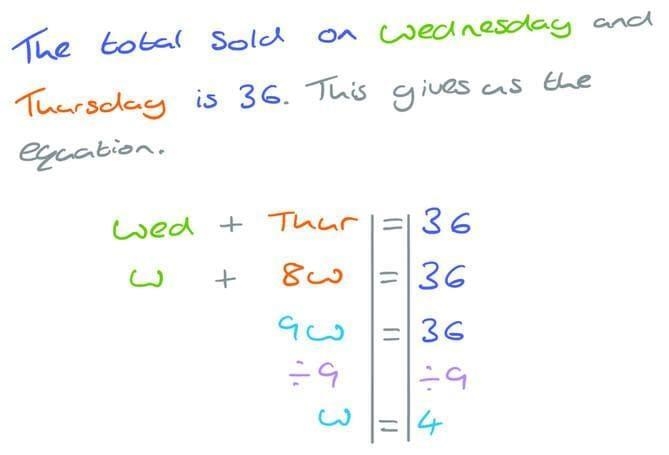 The total sold on Wednesday and
Thursday is 36. This gives us the
equation.
Wed + Thur = 36
w + 8w = 36
9w = 36
÷9 ÷9
w = 4